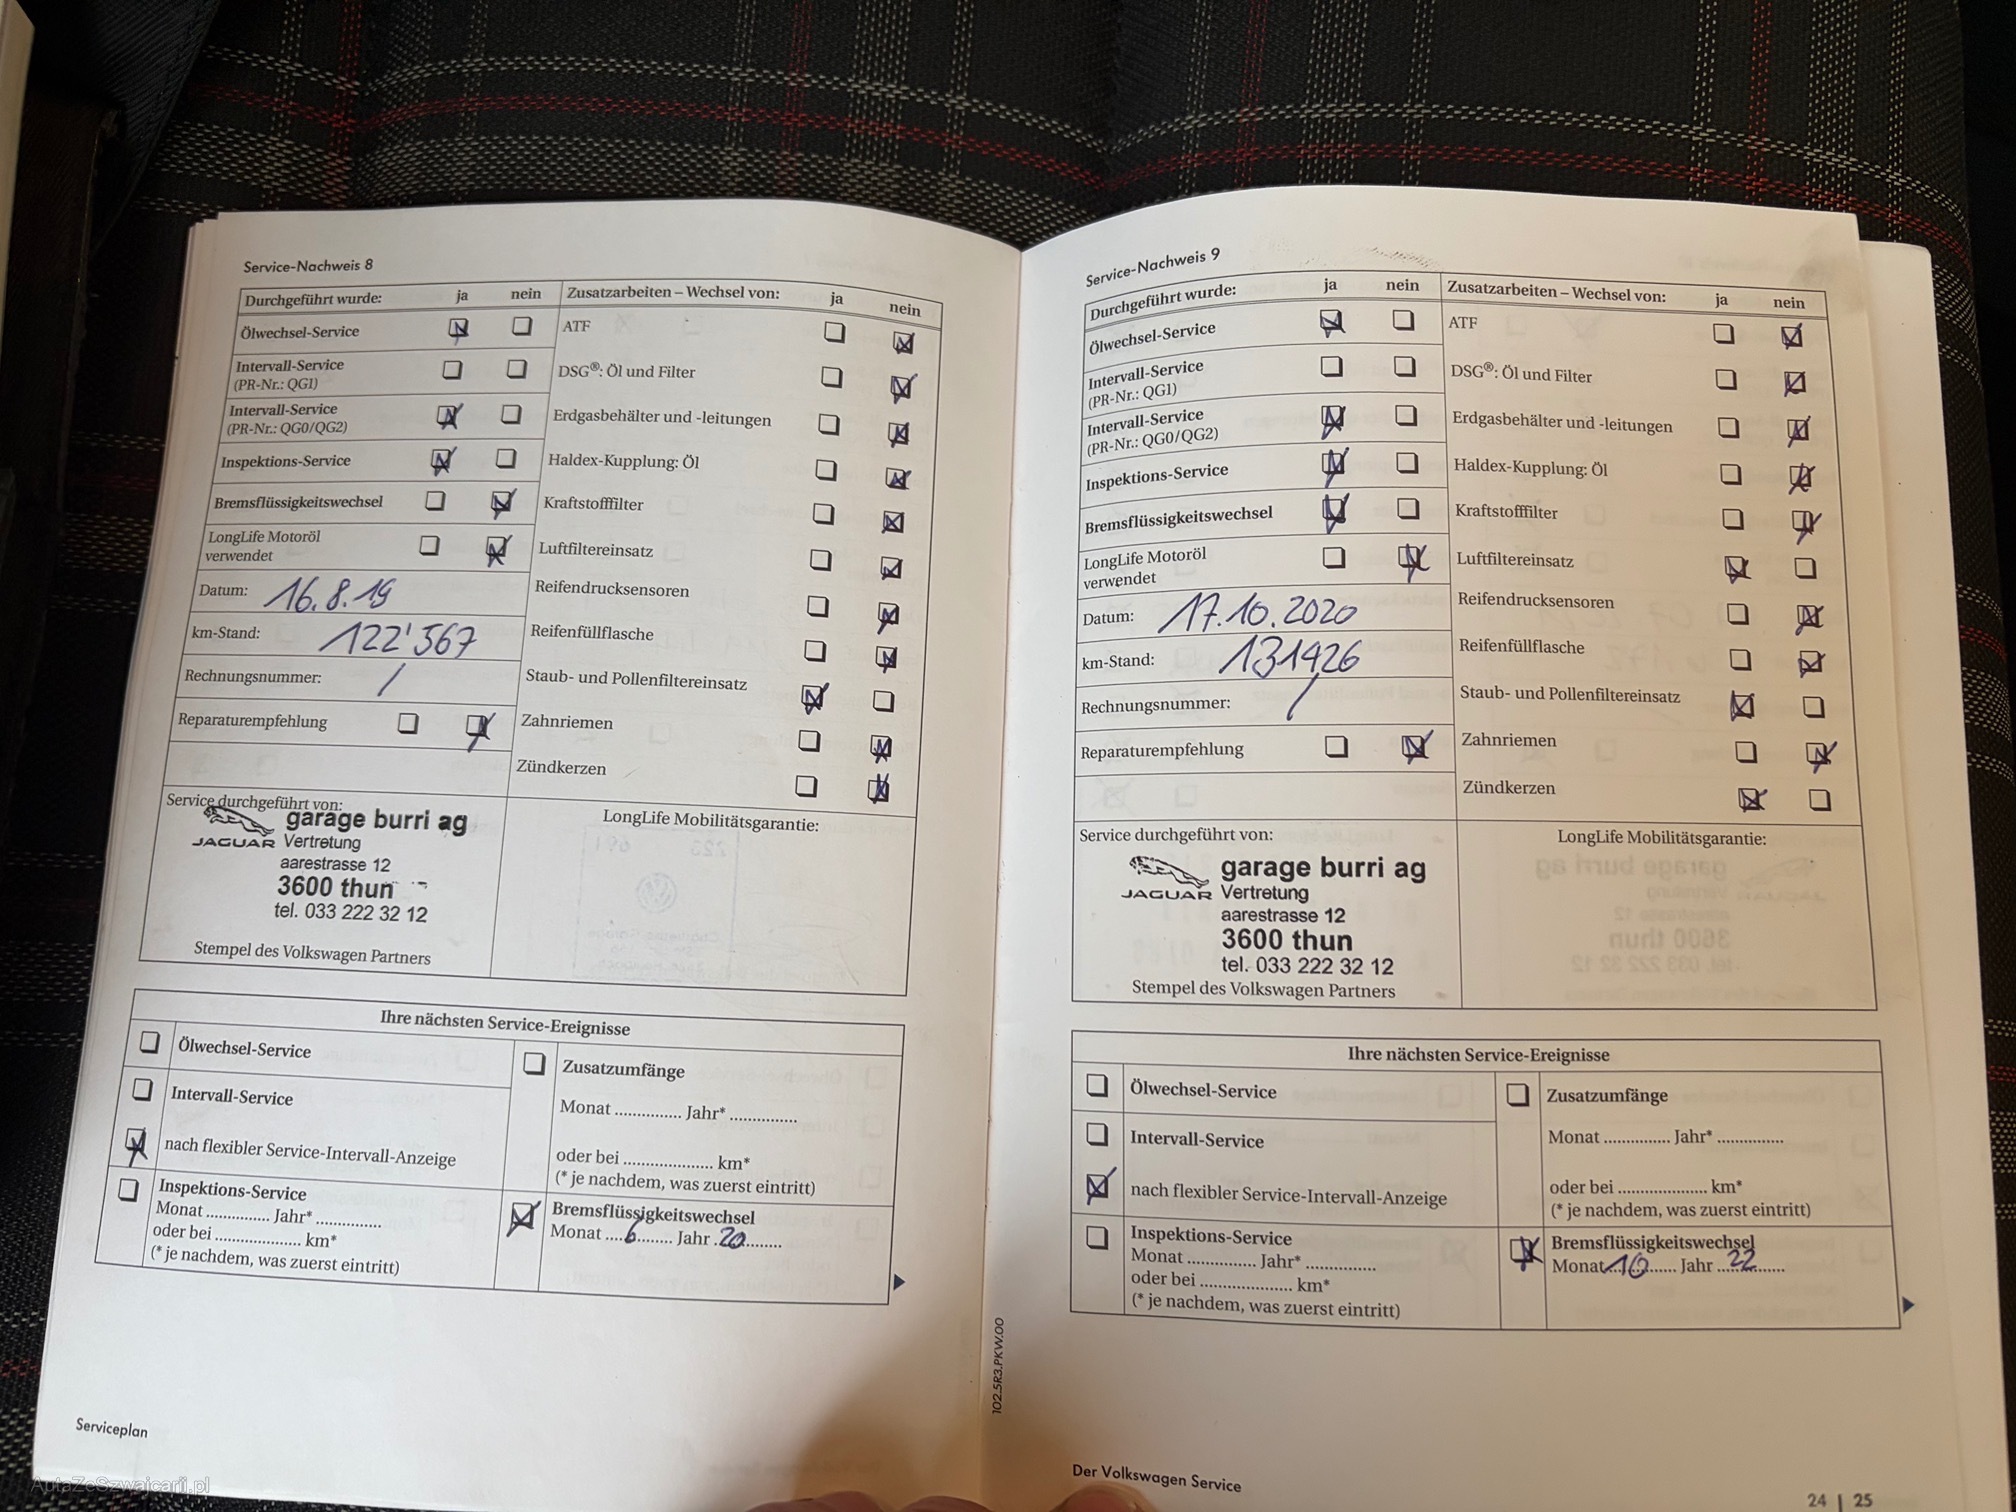 Service-Nachweis 8
Durchgeführt wurde: ja nein
Zusatzarbeiten – Wechsel von: ja nein
Ölwechsel-Service
ATF
Intervall-Service
(PR-Nr.: QG1)
DSG®: Öl und Filter
Intervall-Service
(PR-Nr.: QG0/QG2)
Erdgasbehälter und -leitungen
Inspektions-Service
Haldex-Kupplung: Öl
Bremsflüssigkeitswechsel
Kraftstofffilter
LongLife Motoröl
verwendet
Luftfiltereinsatz
Datum: 16.8.19
Reifendrucksensoren
km-Stand: 122'567
Reifenfüllflasche
Rechnungsnummer: /
Staub- und Pollenfiltereinsatz
Reparaturempfehlung
Zahnriemen
Zündkerzen
Service durchgeführt von:
LongLife Mobilitätsgarantie:
garage burri ag
JAGUAR Vertretung
aarestrasse 12
3600 thun
tel. 033 222 32 12
Stempel des Volkswagen Partners
Ihre nächsten Service-Ereignisse
Ölwechsel-Service
Zusatzumfänge
Intervall-Service
Monat ............... Jahr* ...............
nach flexibler Service-Intervall-Anzeige
oder bei .................... km*
(* je nachdem, was zuerst eintritt)
Inspektions-Service
Monat .............. Jahr* ...............
oder bei .................... km*
(* je nachdem, was zuerst eintritt)
Bremsflüssigkeitswechsel
Monat ....6........ Jahr .20........
Serviceplan
Service-Nachweis 9
Durchgeführt wurde: ja nein
Zusatzarbeiten – Wechsel von: ja nein
Ölwechsel-Service
ATF
Intervall-Service
(PR-Nr.: QG1)
DSG®: Öl und Filter
Intervall-Service
(PR-Nr.: QG0/QG2)
Erdgasbehälter und -leitungen
Inspektions-Service
Haldex-Kupplung: Öl
Bremsflüssigkeitswechsel
Kraftstofffilter
LongLife Motoröl
verwendet
Luftfiltereinsatz
Datum: 17.10.2020
Reifendrucksensoren
km-Stand: 131426
Reifenfüllflasche
Rechnungsnummer: /
Staub- und Pollenfiltereinsatz
Reparaturempfehlung
Zahnriemen
Zündkerzen
Service durchgeführt von:
LongLife Mobilitätsgarantie:
garage burri ag
JAGUAR Vertretung
aarestrasse 12
3600 thun
tel. 033 222 32 12
Stempel des Volkswagen Partners
Ihre nächsten Service-Ereignisse
Ölwechsel-Service
Zusatzumfänge
Intervall-Service
Monat ............... Jahr* ...............
nach flexibler Service-Intervall-Anzeige
oder bei .................... km*
(* je nachdem, was zuerst eintritt)
Inspektions-Service
Monat ............... Jahr* ...............
oder bei .................... km*
(* je nachdem, was zuerst eintritt)
Bremsflüssigkeitswechsel
Monat...10....... Jahr ...22.......
102.5R3.PKW.00
Der Volkswagen Service
24 | 25
AutaZeSzwajcarii.pl